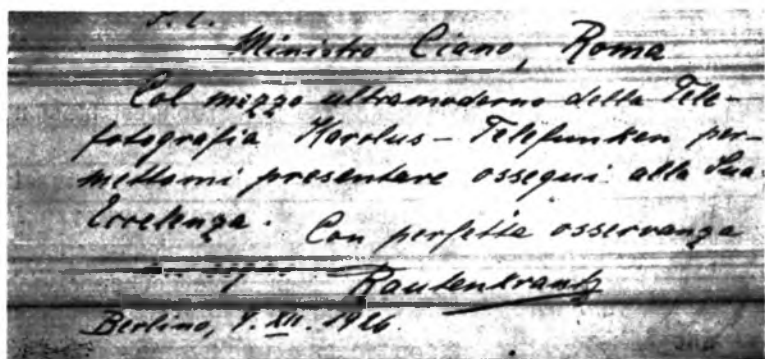 S. E.
Ministro Ciano, Roma
Col mezzo ultramoderno della Tele-
fotografia Karolus - Telefunken per-
mettomi presentare ossequi alla Sua
Eccellenza. Con perfetta osservanza
Rautenkrantz
Berlino, 9. XII. 1926.